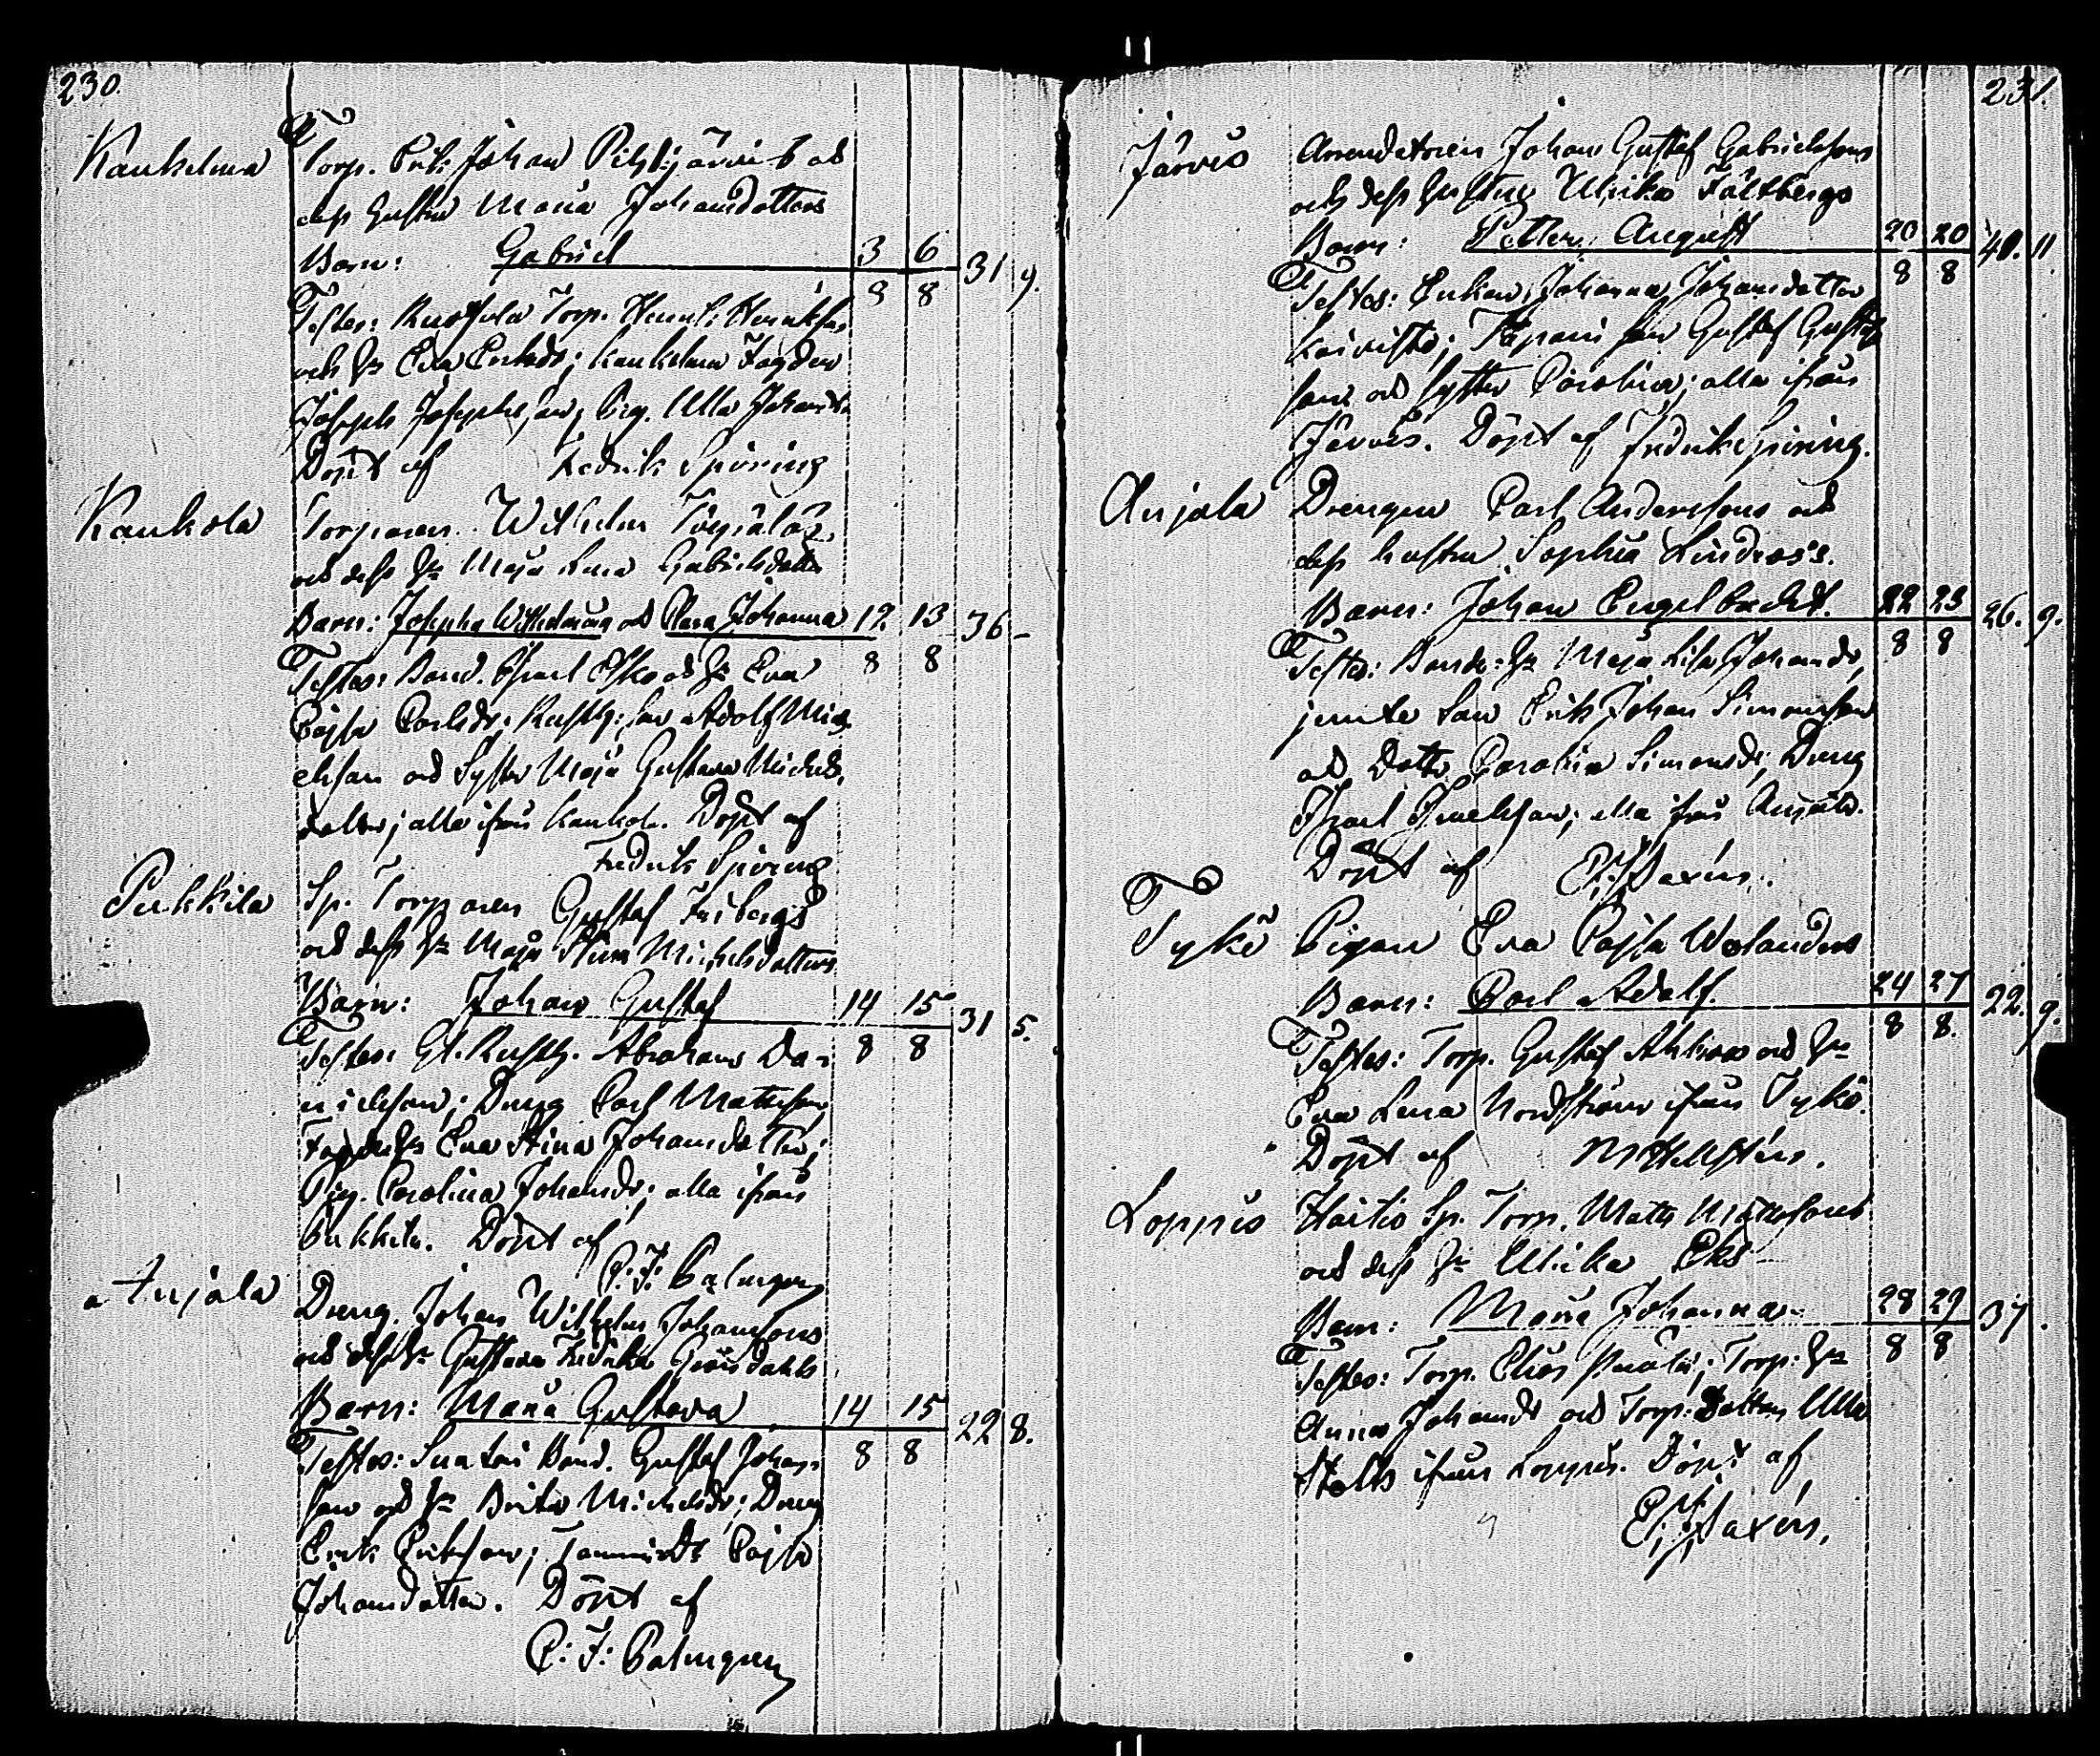 230.
Kaukelma Torp. Erik Johan Pitkäjärvis och
dess hustru Maria Johansdotters
Barn: Gabriel 3 6 31 9.
8 8
Testes: Torp. Henrik Henriksson
och h:u Eva Eriksdr; Kaukelma Fogden
Joseph Josephsson; Pig. Ulla Johansdr
Döpt af Fredrik Sporing
Kaukola Torparen Wilhelm
och dess h:u Maja Lena Gabrielsdotters
Barn: Josepha Wilhelmina och Clara Johanna 12 13 36 -
8 8
Testes: Bond. och h:u Eva
Cajsa Carlsdr; Rusth: son Adolf Mich-
elsson och Syster Maja Gustava Michels-
dotter; alla ifrån Kaukola. Döpt af
Fredrik Sporing
Pukkila Sp. Torparen Gustaf Fribergs
och dess h:u Maja Stina Michelsdotters
Barn: Johan Gustaf 14 15 31 5.
8 8
Testes: Gl. Rusth. Abraham Da-
nielsson; Dreng Carl Mattsson
Fogdeh:u Eva Stina Johansdotter;
Pig. Carolina Johansdr; alla ifrån
Pukkila. Döpt af
C: F: Palmgren
Anjala Dreng. Johan Wilhelm Johanssons
och dess h:u Gustava Fredrika
Barn: Maria Gustava 14 15 22 8.
8 8
Testes: Bond. Gustaf Johans-
son och h:u Brita Michelsdr; Dreng
Erik Eriksson; Cajsa
Johansdotter. Döpt af
C: F: Palmgren
231.
Järvis Arrendatoren Johan Gustaf Gabrielssons
och dess hustru Ulrika Fältbergs
Barn: Petter August 20 20 40. 11.
8 8
Testes: Enkan Johanna Johansdotter
Koivisto; son Gustaf Gustafs-
son och syster Carolina; alla ifrån
Järvis. Döpt af Fredrik Sporing.
Anjala Drengen Carl Anderssons och
dess hustru Sophia Lindroos's.
Barn: Johan Engelbrecht. 22 23 26. 9.
8 8
Testes: Bonde: h:u Maja Lisa Johansdr,
jemte son Erik Johan Simonsson
och Dotter Carolina Simonsdr; Dreng
Israel Israelsson; alla ifrån Anjala.
Döpt af Saxén.
Tykö Pigan Eva Cajsa Welanders
Barn: Carl Adolf. 24 27 22. 9.
8 8.
Testes: Torp. Gustaf och h:u
Eva Lena Nordström ifrån Tykö.
Döpt af M Hellstén.
Loppis Sp. Torp. Matts Mattssons
och dess h:u Ulrika Eks
Barn: Maria Johanna 28 29 37 .
8 8
Testes: Torp. Elias ; Torp: h:u
Anna Johansdr och Torp: Dottern Ulla
ifrån Loppis. Döpt af
Saxén.